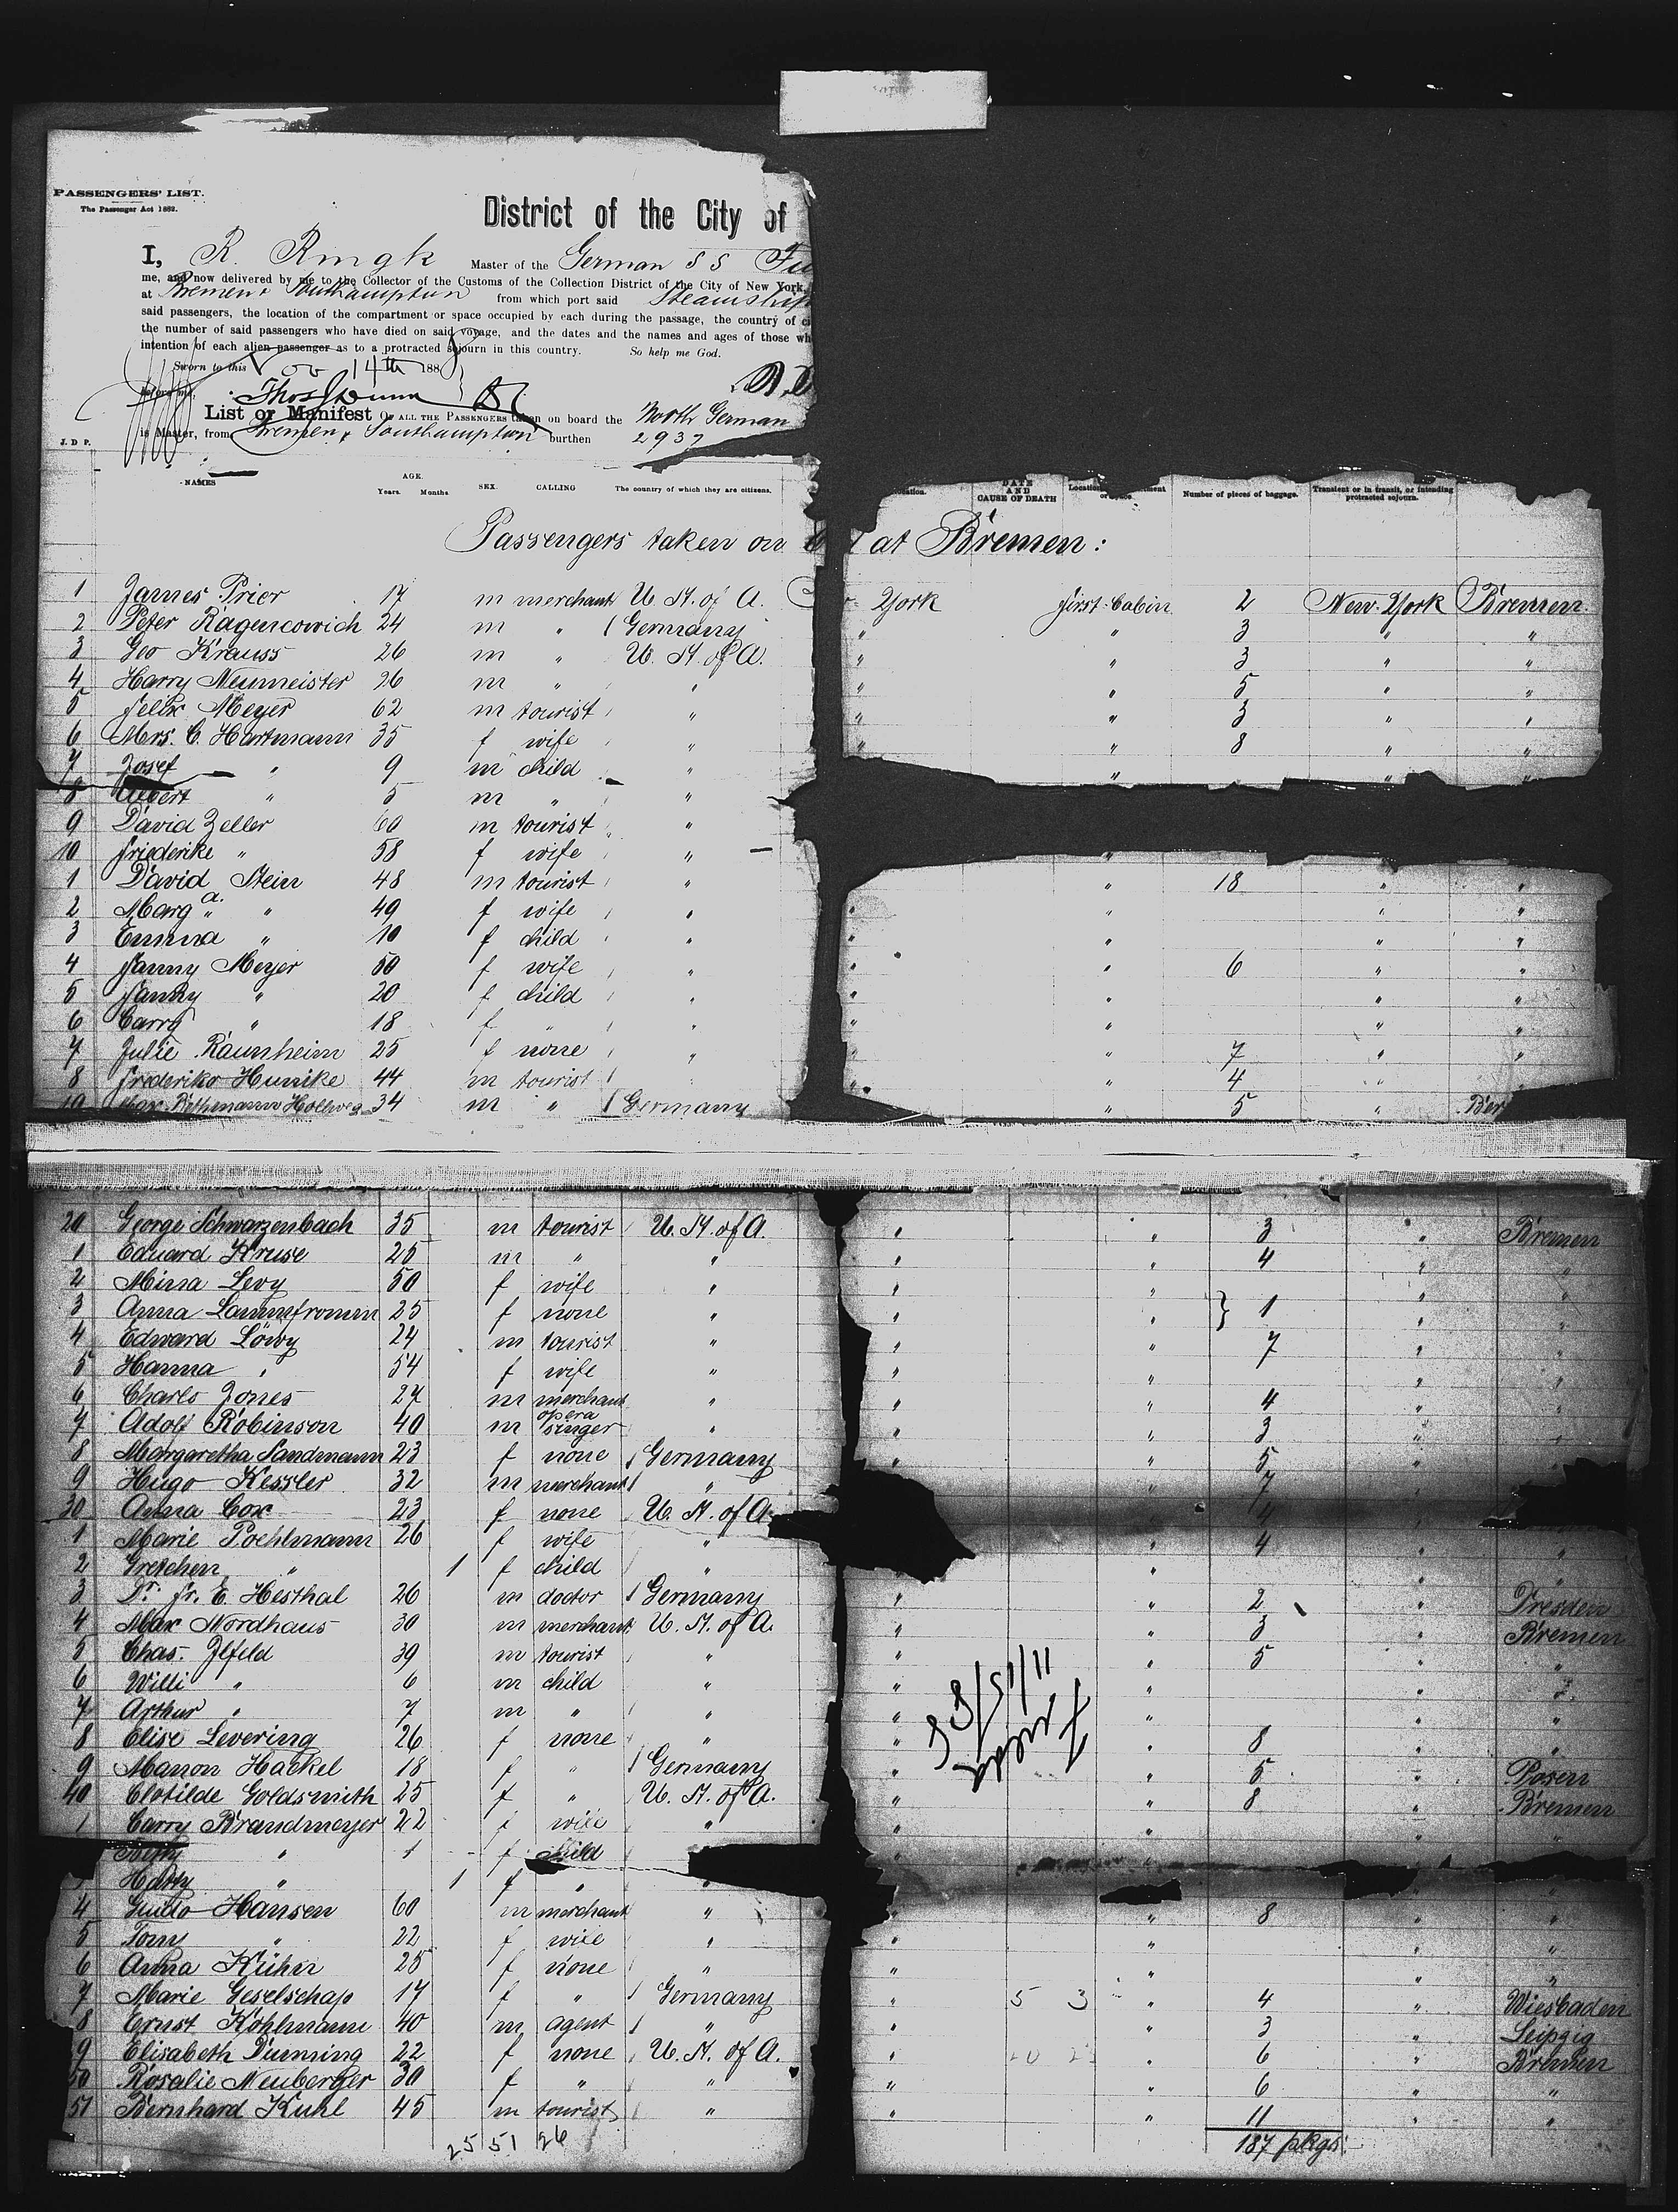 PASSENGERS' LIST.
The Passenger Act 1882.
District of the City of
I, R. Ringk Master of the German S S Fu
me, and now delivered by me to the Collector of the Customs of the Collection District of the City of New York,
at Bremen & Southampton from which port said Steamship
said passengers, the location of the compartment or space occupied by each during the passage, the country of ci
the number of said passengers who have died on said voyage, and the dates and the names and ages of those wh
intention of each alien passenger as to a protracted sojourn in this country. So help me God.
Sworn to this Nov 14th 188
before me, Thos Dunn
List or Manifest OF ALL THE PASSENGERS taken on board the North German
is Master, from Bremen & Southampton burthen 2937
J. D P.
NAMES AGE. Years. Months SEX. CALLING The country of which they are citizens. DATE AND CAUSE OF DEATH Number of pieces of baggage. Transient or in transit, or intending protracted sojourn.
Passengers taken on at Bremen:
1 James Prior 17 m merchant U. St. of A. York first Cabin 2 New-York Bremen.
2 Peter Ragencowich 24 m " Germany " " 3 " "
3 Geo Krauss 26 m " U. St. of A. " " 3 " "
4 Harry Neumeister 26 m " " " " 5 " "
5 Felix Meyer 62 m tourist " " " 3 " "
6 Mrs. C. Hartmann 35 f wife " " " 8 " "
7 Josef " 9 m child " " " "
8 Albert " 5 m " "
9 David Zeller 60 m tourist "
10 Friederike " 58 f wife " "
1 David Stein 48 m tourist " " 18 " "
2 Marg a. " 49 f wife " " " " "
3 Emma " 10 f child " " " " "
4 Fanny Meyer 50 f wife " " " 6 " "
5 Fanny " 20 f child " " " " "
6 Carry " 18 f " " " " " "
7 Julie Raunheim 25 f none " " " 7 " "
8 Frederiko Hunike 44 m tourist " " 4 " "
19 Max Bethmann Hollweg 34 m " Germany " 5 " Ber
20 George Schwarzenbach 35 m tourist U. St. of A. " " 3 " Bremen
1 Eduard Kruse 25 m " " " " 4 " "
2 Mina Levy 50 f wife " " " " "
3 Anna Lammfromm 25 f none " " " } 1 " "
4 Edward Löwy 24 m tourist " " " 7 " "
5 Hanna " 54 f wife " " " " "
6 Charls Jones 27 m merchant " " " 4 " "
7 Adolf Robinson 40 m opera singer " " " 3 " "
8 Margaretha Sandmann 23 f none Germany " " 5 " "
9 Hugo Kessler 32 m merchant " " 7
30 Anna Cox 23 f none U. St. of A. " 4
1 Marie Poehlmann 26 f wife " " 4 " "
2 Gretchen " 1 f child " " " "
3 Dr. Fr. E. Hesthal 26 m doctor Germany " " 2 " Dresden
4 Max Nordhaus 30 m merchant U. St. of A. " " 3 " Bremen
5 Chas. Ilfeld 39 m tourist " " " 5 " "
6 Willi " 6 m child " " " " "
7 Arthur " 7 m " " " " " "
8 Elise Levering 26 f none " " " 8 " "
9 Manon Hackel 18 f " Germany " " 5 " Posen
40 Clotilde Goldsmith 25 f " U. St. of A. " " 8 " Bremen
1 Carry Brandmeyer 22 f wife " " " " "
" 1 f child "
Hatty " 1 f " " " "
4 Guido Hansen 60 m merchant " " 8 " "
5 Tony " 22 f wife " " " " "
6 Anna Kühn 25 f none " " " " "
7 Marie Geselschap 17 f " Germany " 5 3 " 4 " Wiesbaden
8 Ernst Kohlmann 40 m agent " " " 3 " Leipzig
9 Elisabeth Duming 22 f none U. St. of A. " " 6 " Bremen
50 Rosalie Neuberger 30 f " " " " 6 " "
51 Bernhard Kuhl 45 m tourist " " " 11 " "
25 51 26 187 pkgs.
11/15/88